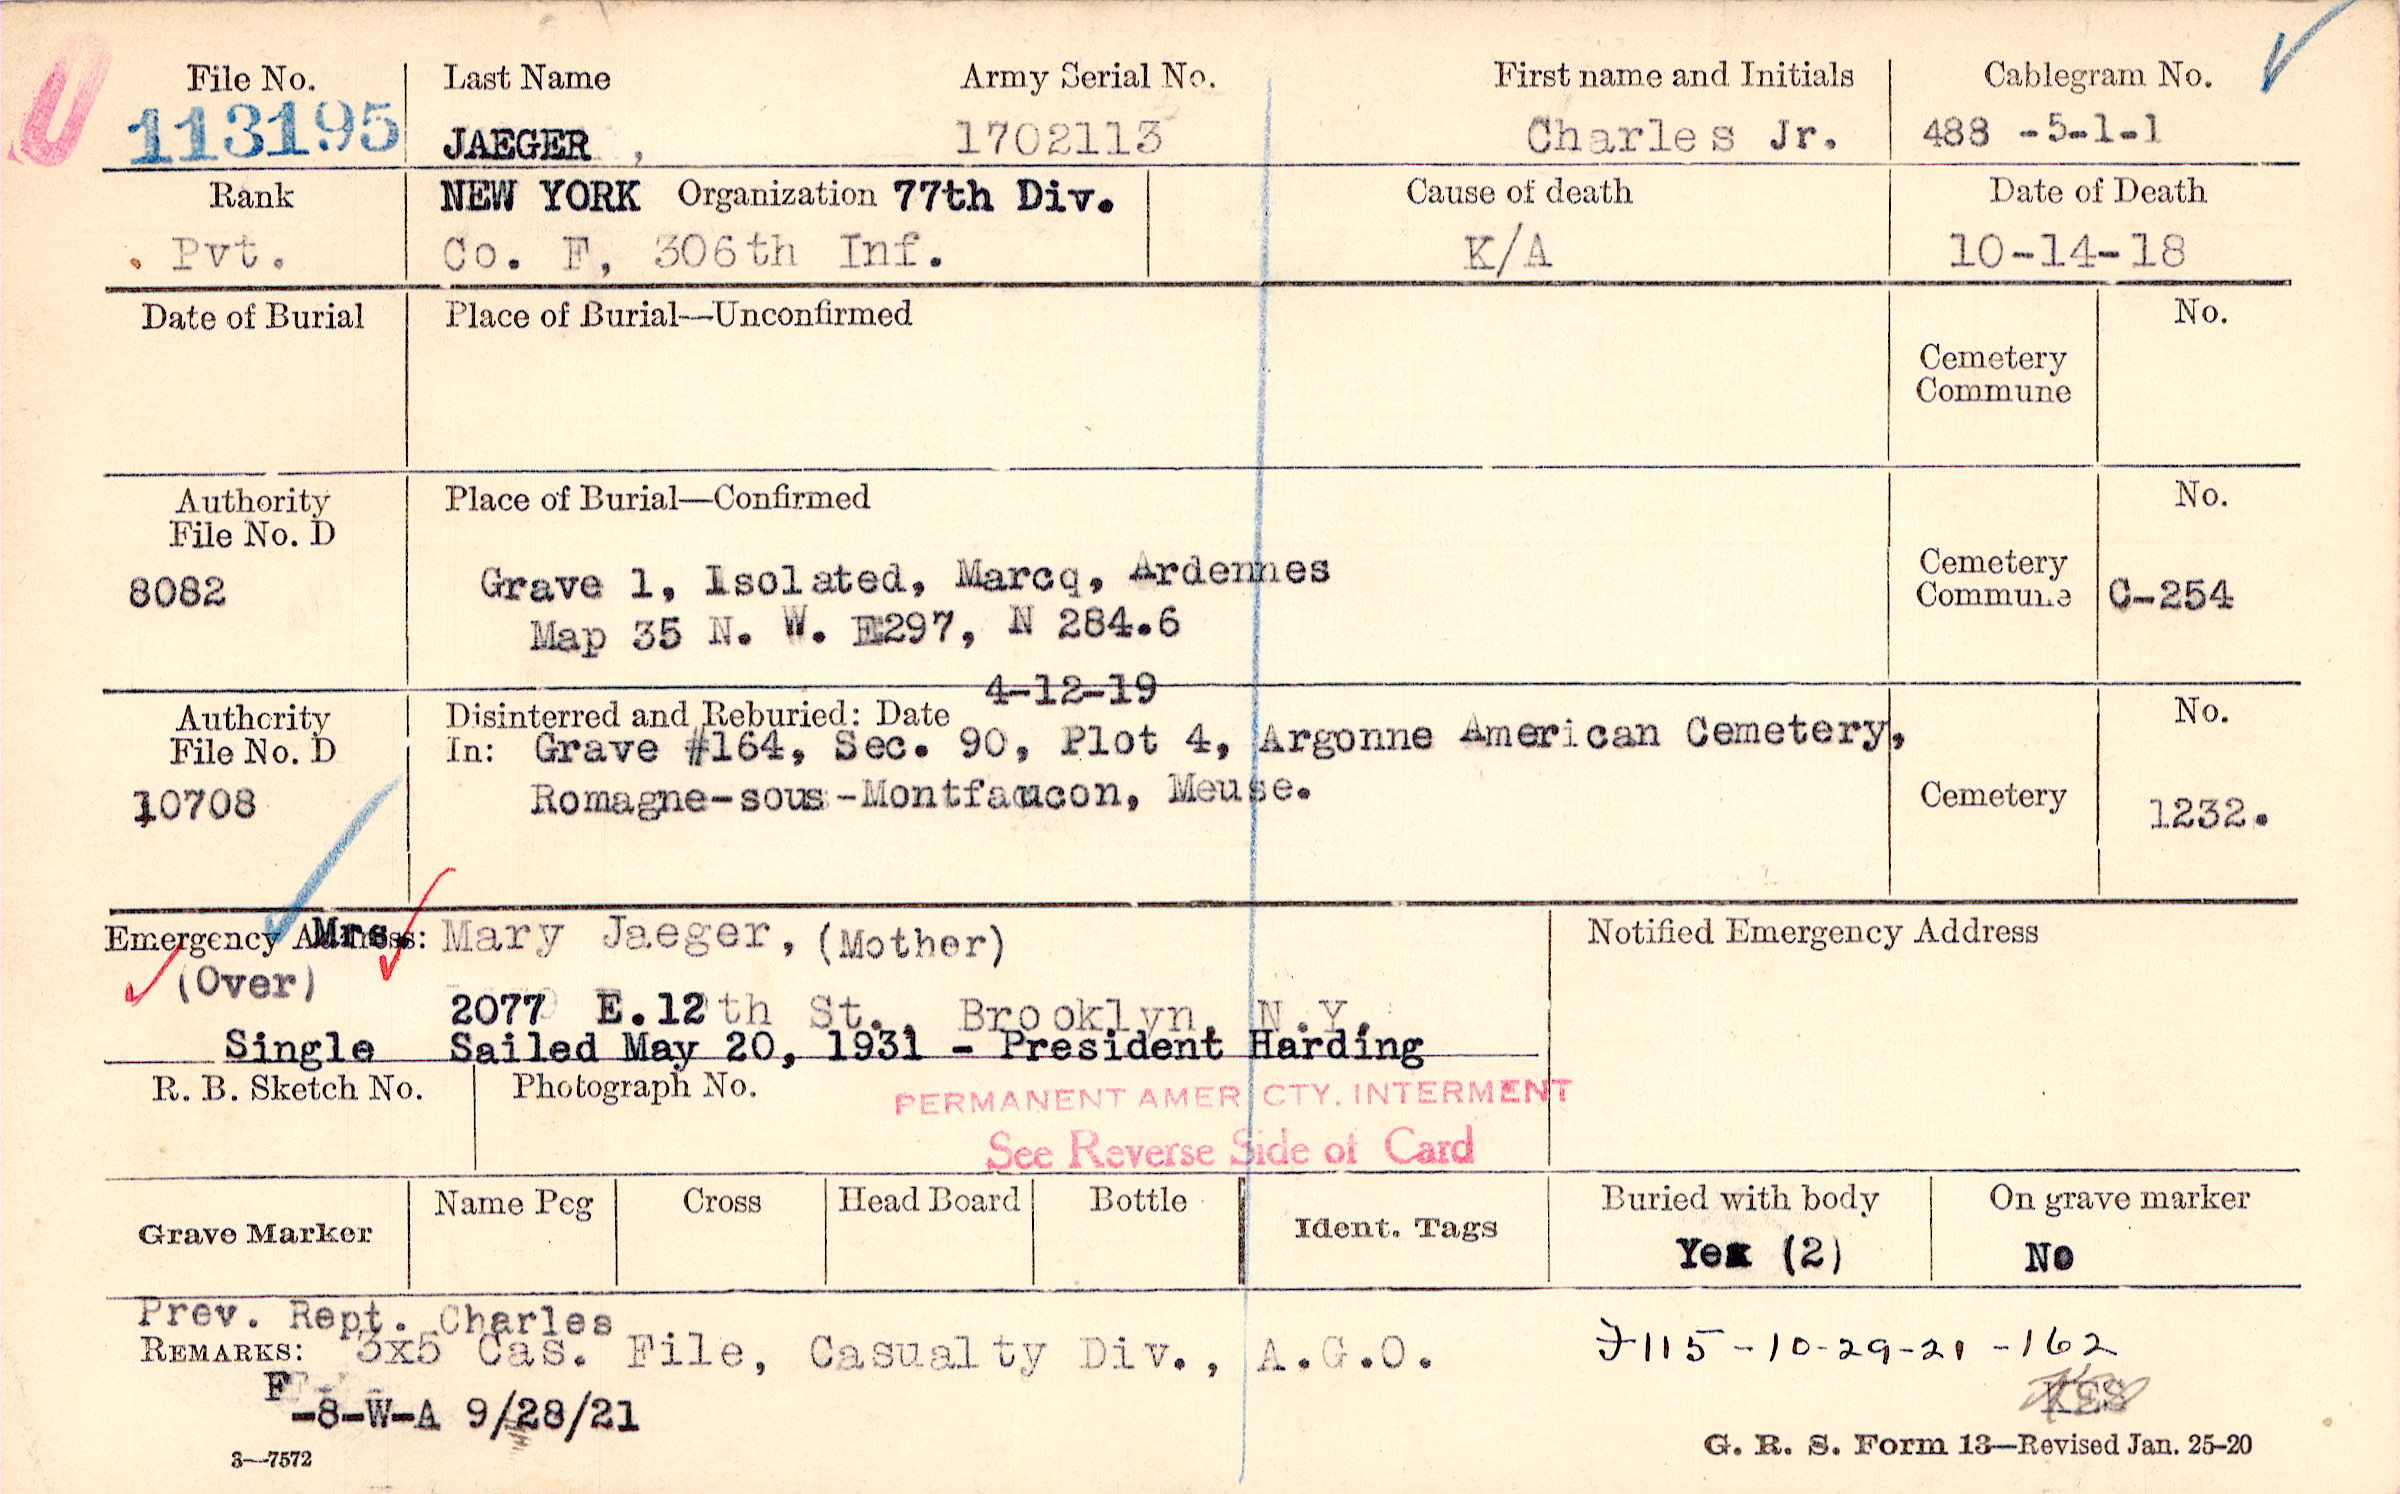 File No. Last Name Army Serial No. First name and Initials Cablegram No.
113195 JAEGER , 1702113 Charles Jr. 488 -5-1-1
Rank NEW YORK Organization 77th Div. Cause of death Date of Death
Pvt. Co. F, 306th Inf. K/A 10-14-18
Date of Burial Place of Burial—Unconfirmed No.
Cemetery
Commune
Authority Place of Burial—Confirmed No.
File No. D
8082 Grave 1, Isolated, Marcq, Ardennes Cemetery
Commune C-254
Map 35 N. W. E297, N 284.6
4-12-19
Authority Disinterred and Reburied: Date No.
File No. D In: Grave #164, Sec. 90, Plot 4, Argonne American Cemetery,
10708 Romagne-sous-Montfaucon, Meuse. Cemetery 1232.
Emergency Address: Mrs. Mary Jaeger, (Mother) Notified Emergency Address
(Over)
2077 E.12th St., Brooklyn, N.Y.
Single Sailed May 20, 1931 - President Harding
R. B. Sketch No. Photograph No.
PERMANENT AMER CTY. INTERMENT
See Reverse Side of Card
Grave Marker Name Peg Cross Head Board Bottle Ident. Tags Buried with body On grave marker
Yes (2) No
Prev. Rept. Charles
REMARKS: 3x5 Cas. File, Casualty Div., A.G.O. F115-10-29-21-162
F
-8-W-A 9/28/21 KES
3—7572 G. R. S. Form 13—Revised Jan. 25-20